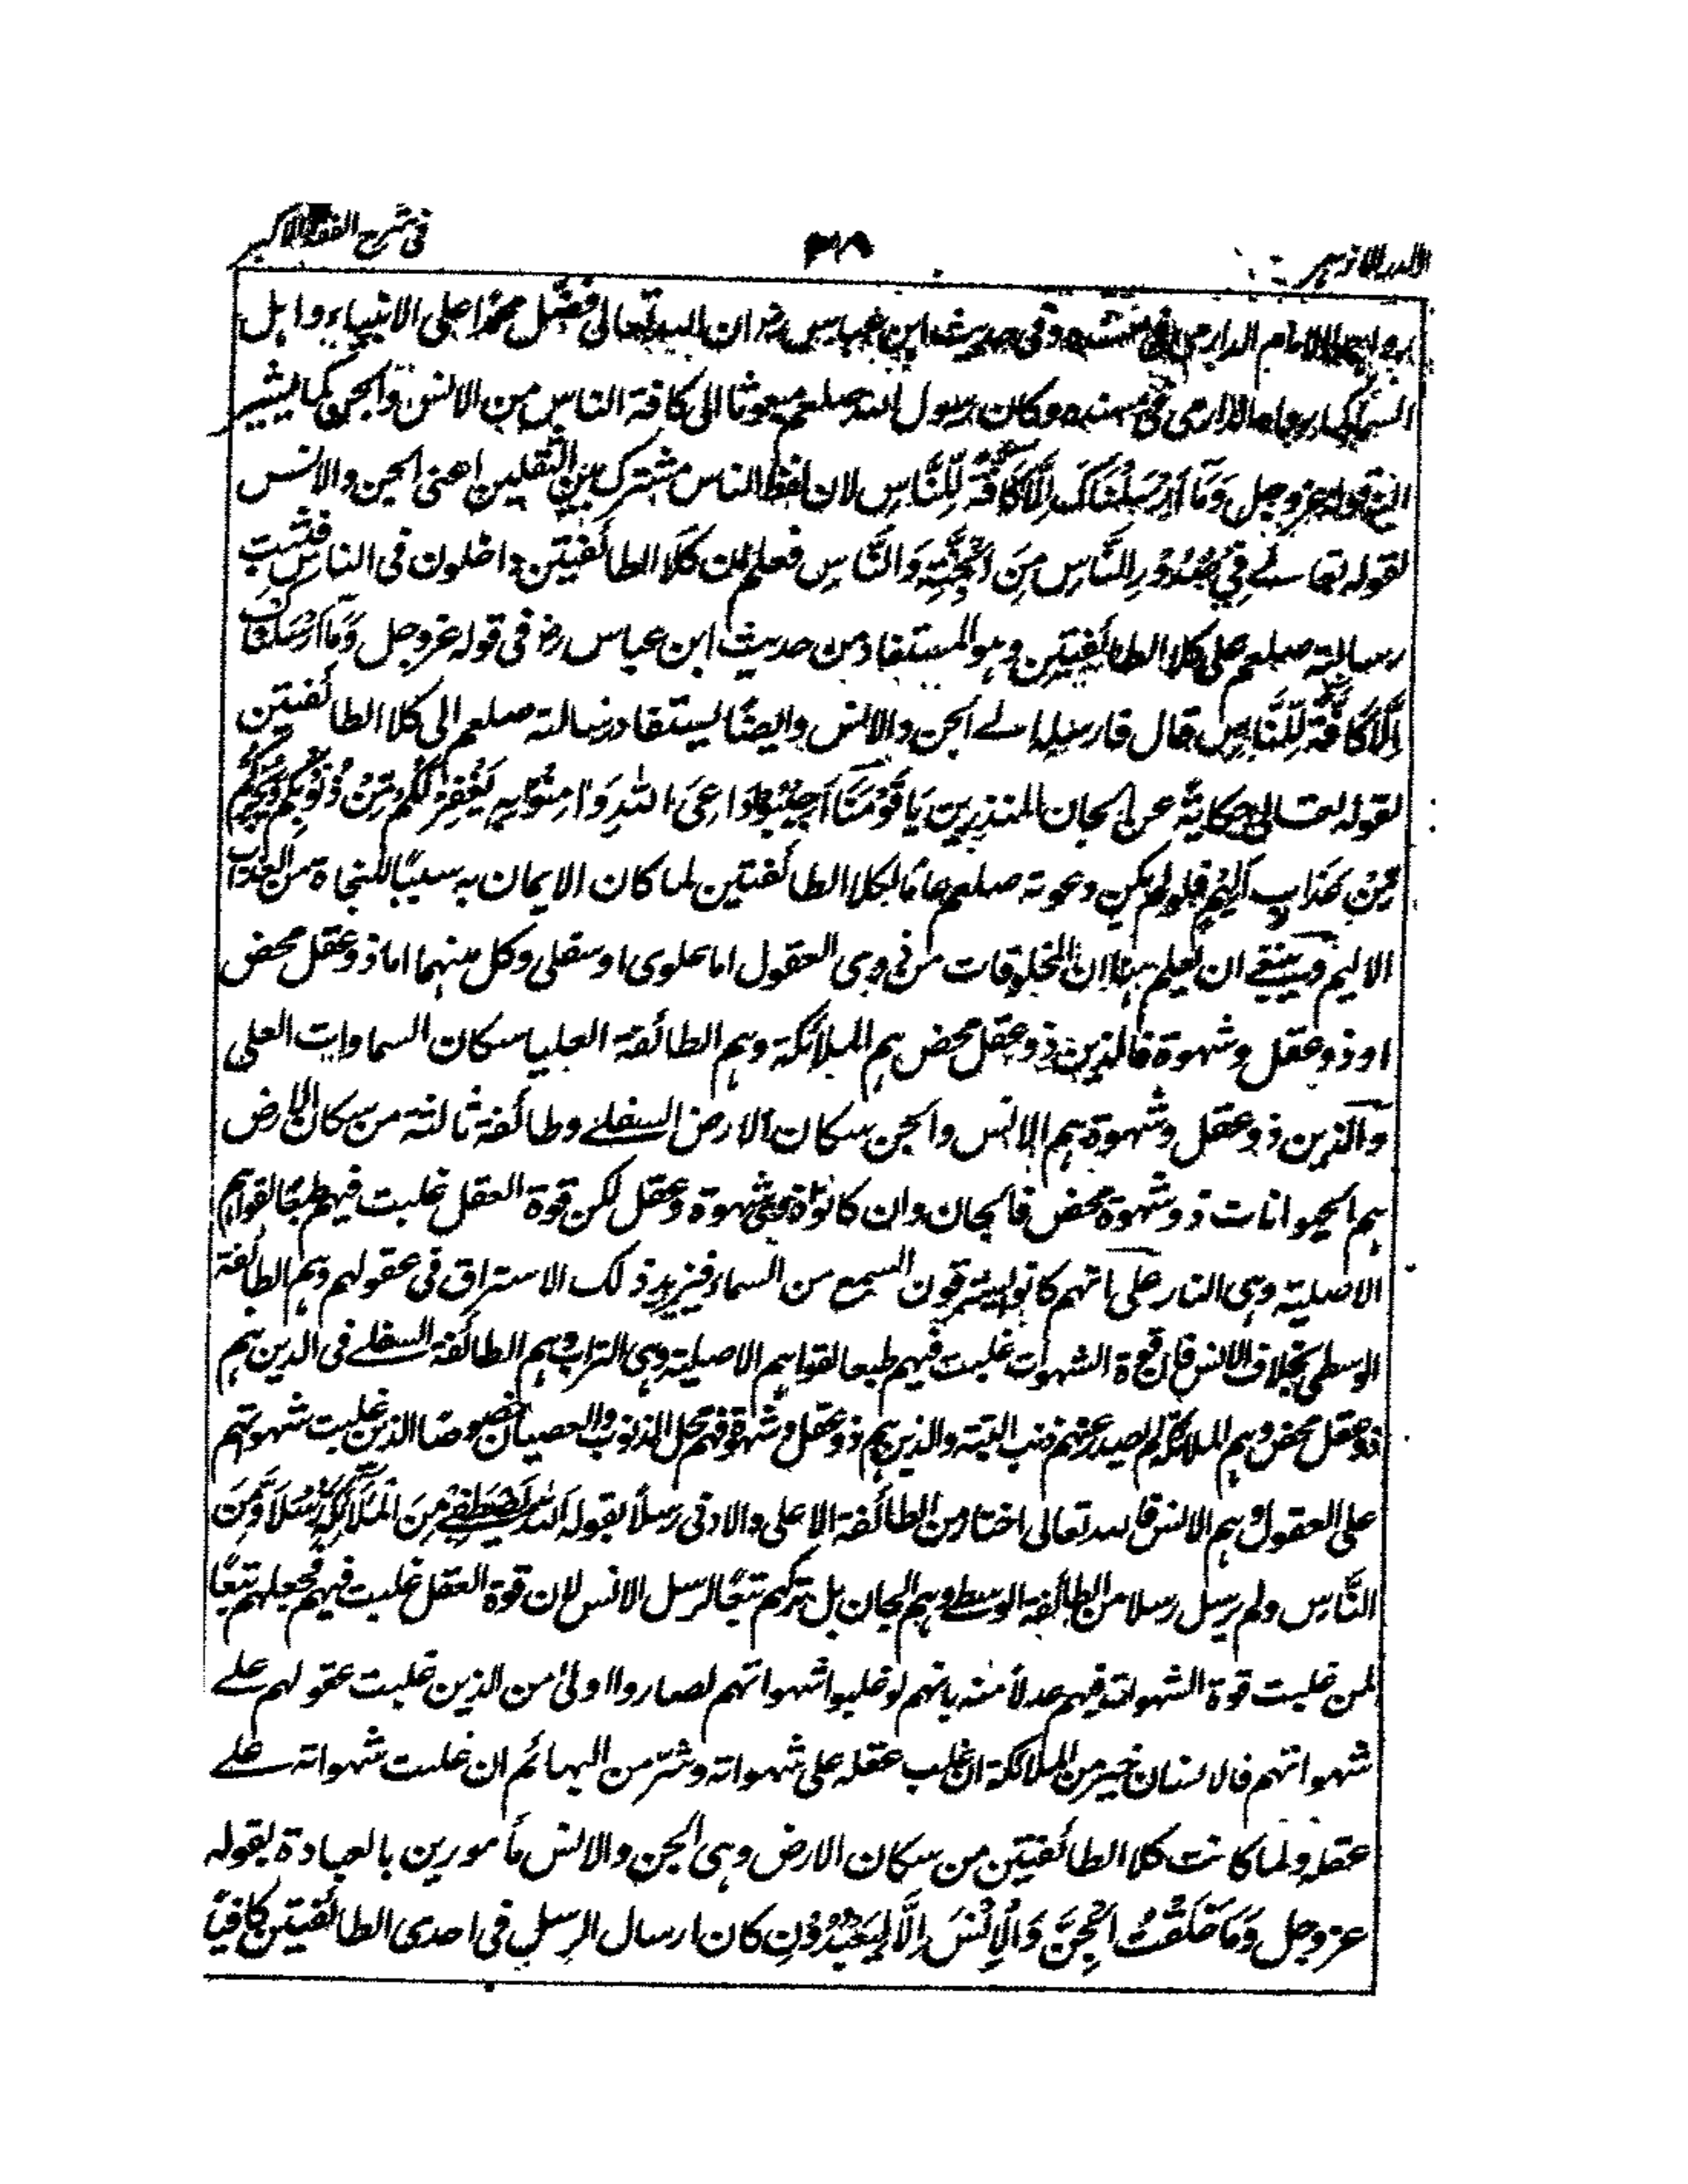 الدر الازهر ٣٨ فى شرح الفقه الاكبر
رواه الامام الدارمى فى مسنده وفى حديث ابن عباس رض ان الله تعالى فضّل محمدا على الانبياء واهل
السماء كما رواه الدارمى فى مسنده وكان رسول الله صلعم مبعوثا الى كافة الناس من الانس والجن كما يشير
اليه قوله عزوجل وَمَآ اَرْسَلْنَاكَ اِلَّا كَافَّةً لِّلنَّاسِ لان لفظ الناس مشترك بين الثقلين اعنى الجن والانس
لقوله تعالے فِيْ صُدُوْرِ النَّاسِ مِنَ الْجِنَّةِ وَالنَّاسِ فعلم ان كلا الطائفتين داخلون فى الناس فثبت
رسالته صلعم على كلا الطائفتين وهو المستفاد من حديث ابن عباس رض فى قوله عزوجل وَمَآ اَرْسَلْنَاكَ
اِلَّا كَافَّةً لِّلنَّاسِ قال فارسله الے الجن والانس وايضًا يستفاد رسالته صلعم الى كلا الطائفتين
لقوله تعالى حكايةً عن الجان المنذرين يَا قَوْمَنَآ اَجِيْبُوْا دَاعِيَ اللهِ وَاٰمِنُوْا بِهٖ يَغْفِرْ لَكُمْ مِّنْ ذُنُوْبِكُمْ وَيُجِرْكُمْ
مِّنْ عَذَابٍ اَلِيْمٍ فلو لم يكن دعوته صلعم عامًا لكلا الطائفتين لما كان الايمان به سببًا للنجاة من العذاب
الاليم وينبغے ان يعلم هنا ان المخلوقات من ذوى العقول اما علوى او سفلى وكل منهما اما ذو عقل محض
او ذو عقل وشهوة فالذين ذو عقل محض هم الملائكة وهم الطائفة العليا سكان السماوات العلى
والذين ذو عقل وشهوة هم الانس والجن سكان الارض السفلے وطائفة ثالثة من سكان الارض
هم الحيوانات ذو شهوة محض فالجان وان كانوا ذوى شهوة وعقل لكن قوة العقل غلبت فيهم طبعًا لقواهم
الاصلية وهى النار على انهم كانوا يسترقون السمع من السماء فيزيد ذلك الاستراق فى عقولهم وهم الطائفة
الوسطى بخلاف الانس فان قوة الشهوات غلبت فيهم طبعا لقواهم الاصلية وهى التراب وهم الطائفة السفلے فى الذين هم
ذو عقل محض وهم الملائكة لم يصدر عنهم ذنب البتة والذين هم ذو عقل وشهوة فهم محل الذنوب والعصيان خصوصًا الذين غلبت شهوتهم
على العقول وهم الانس فالله تعالى اختار من الطائفة الاعلى والادنى رسلًا بقوله اَللهُ يَصْطَفِيْ مِنَ الْمَلٰٓئِكَةِ رُسُلًا وَّمِنَ
النَّاسِ ولم يرسل رسلا من الطائفة الوسطے وهم الجان بل تركهم تبعًا لرسل الانس لان قوة العقل غلبت فيهم فجعلهم تبعًا
لمن غلبت قوة الشهوات فيهم عدلًا منه بانهم لو غلبوا شهواتهم لصاروا اولىٰ من الذين غلبت عقولهم علے
شهواتهم فالانسان خير من الملائكة ان غلب عقله على شهواته وشر من البهائم ان غلبت شهواته علے
عقله ولما كانت كلا الطائفتين من سكان الارض وهى الجن والانس مأمورين بالعبادة بقوله
عزوجل وَمَا خَلَقْتُ الْجِنَّ وَالْاِنْسَ اِلَّا لِيَعْبُدُوْنِ كان ارسال الرسل فى احدى الطائفتين كافيًا